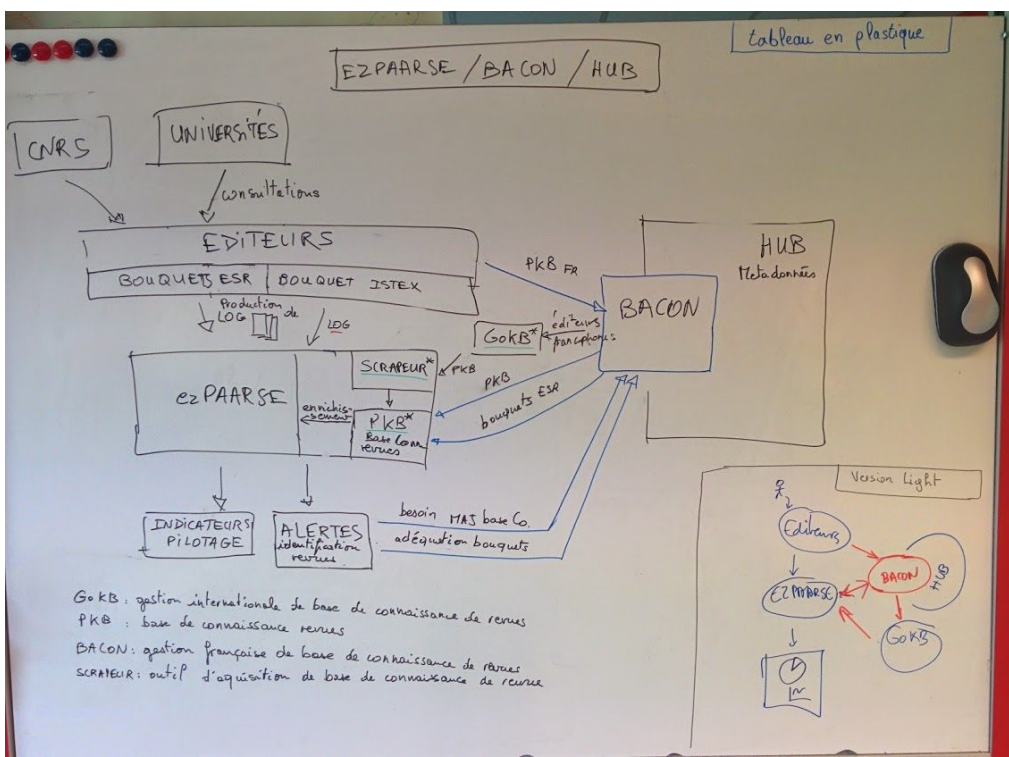 tableau en plastique
EZPAARSE / BACON / HUB
CNRS
UNIVERSITÉS
consultations
EDITEURS
BOUQUETS ESR
BOUQUET ISTEX
Production de
LOG
LOG
PKB FR
HUB
Metadonnées
BACON
GoKB*
éditeurs
francophones
SCRAPEUR*
PKB
ezPAARSE
enrichis-
sement
PKB*
Base Conn
revues
PKB
bouquets ESR
INDICATEURS
PILOTAGE
ALERTES
identification
revues
besoin MAJ base Co.
adéquation bouquets
GoKB : gestion internationale de base de connaissance de revues
PKB : base de connaissance revues
BACON : gestion française de base de connaissance de revues
SCRAPEUR : outil d'aquisition de base de connaissance de revue
Version Light
Editeurs
BACON
HUB
EZPAARSE
GoKB